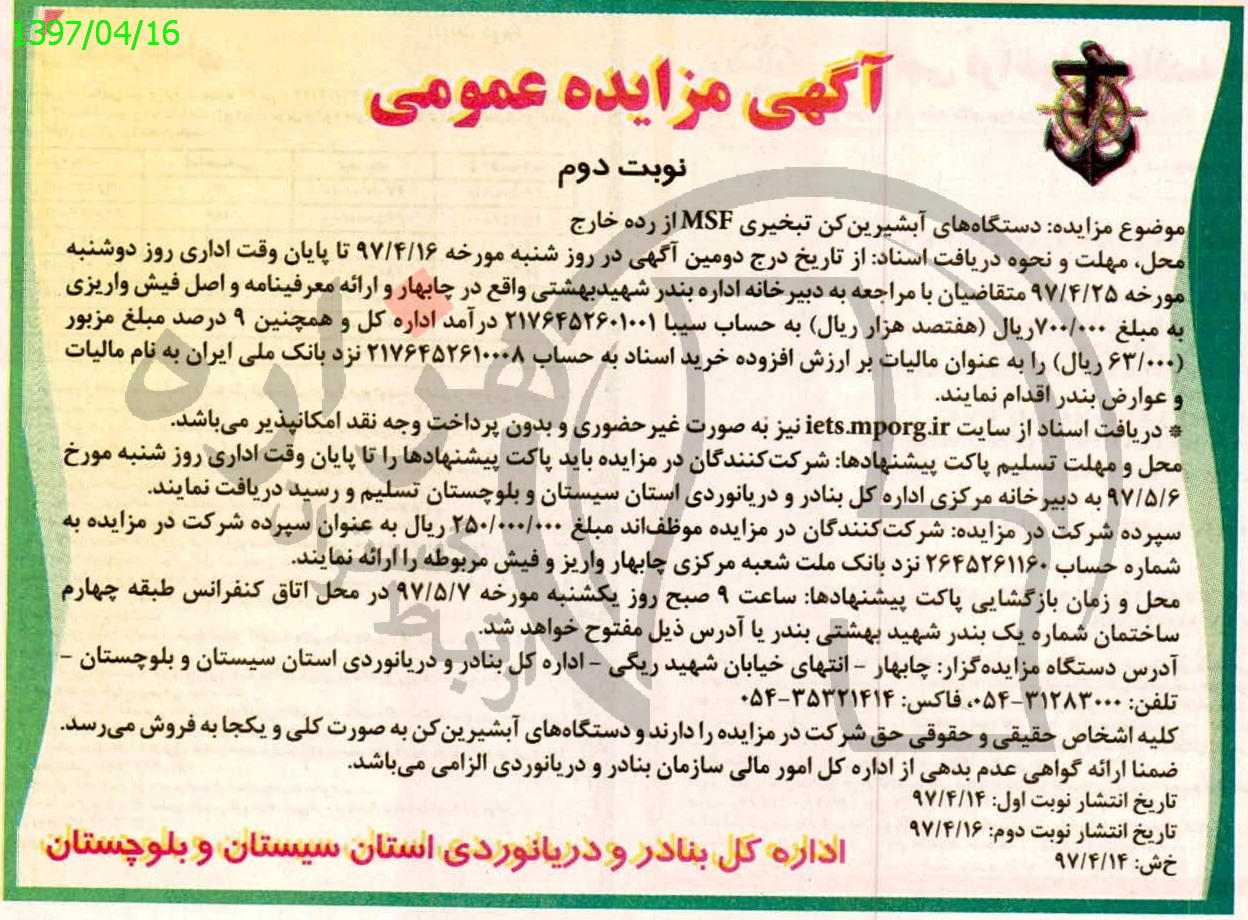 1397/04/16
آگهی مزایده عمومی
نوبت دوم
موضوع مزایده: دستگاه‌های آبشیرین‌کن تبخیری MSF از رده خارج
محل، مهلت و نحوه دریافت اسناد: از تاریخ درج دومین آگهی در روز شنبه مورخه ۹۷/۴/۱۶ تا پایان وقت اداری روز دوشنبه
مورخه ۹۷/۴/۲۵ متقاضیان با مراجعه به دبیرخانه اداره بندر شهیدبهشتی واقع در چابهار و ارائه معرفینامه و اصل فیش واریزی
به مبلغ ۷۰۰/۰۰۰ریال (هفتصد هزار ریال) به حساب سیبا ۲۱۷۶۴۵۲۶۰۱۰۰۱ درآمد اداره کل و همچنین ۹ درصد مبلغ مزبور
(۶۳/۰۰۰ ریال) را به عنوان مالیات بر ارزش افزوده خرید اسناد به حساب ۲۱۷۶۴۵۲۶۱۰۰۰۸ نزد بانک ملی ایران به نام مالیات
و عوارض بندر اقدام نمایند.
* دریافت اسناد از سایت iets.mporg.ir نیز به صورت غیرحضوری و بدون پرداخت وجه نقد امکانپذیر می‌باشد.
محل و مهلت تسلیم پاکت پیشنهادها: شرکت‌کنندگان در مزایده باید پاکت پیشنهادها را تا پایان وقت اداری روز شنبه مورخ
۹۷/۵/۶ به دبیرخانه مرکزی اداره کل بنادر و دریانوردی استان سیستان و بلوچستان تسلیم و رسید دریافت نمایند.
سپرده شرکت در مزایده: شرکت‌کنندگان در مزایده موظف‌اند مبلغ ۲۵۰/۰۰۰/۰۰۰ ریال به عنوان سپرده شرکت در مزایده به
شماره حساب ۲۶۴۵۲۶۱۱۶۰ نزد بانک ملت شعبه مرکزی چابهار واریز و فیش مربوطه را ارائه نمایند.
محل و زمان بازگشایی پاکت پیشنهادها: ساعت ۹ صبح روز یکشنبه مورخه ۹۷/۵/۷ در محل اتاق کنفرانس طبقه چهارم
ساختمان شماره یک بندر شهید بهشتی بندر یا آدرس ذیل مفتوح خواهد شد.
آدرس دستگاه مزایده‌گزار: چابهار - انتهای خیابان شهید ریگی - اداره کل بنادر و دریانوردی استان سیستان و بلوچستان -
تلفن: ۳۱۲۸۳۰۰۰-۰۵۴، فاکس: ۳۵۳۲۱۴۱۴-۰۵۴
کلیه اشخاص حقیقی و حقوقی حق شرکت در مزایده را دارند و دستگاه‌های آبشیرین‌کن به صورت کلی و یکجا به فروش می‌رسد.
ضمنا ارائه گواهی عدم بدهی از اداره کل امور مالی سازمان بنادر و دریانوردی الزامی می‌باشد.
تاریخ انتشار نوبت اول: ۹۷/۴/۱۴
تاریخ انتشار نوبت دوم: ۹۷/۴/۱۶
خ‌ش: ۹۷/۴/۱۴
اداره کل بنادر و دریانوردی استان سیستان و بلوچستان